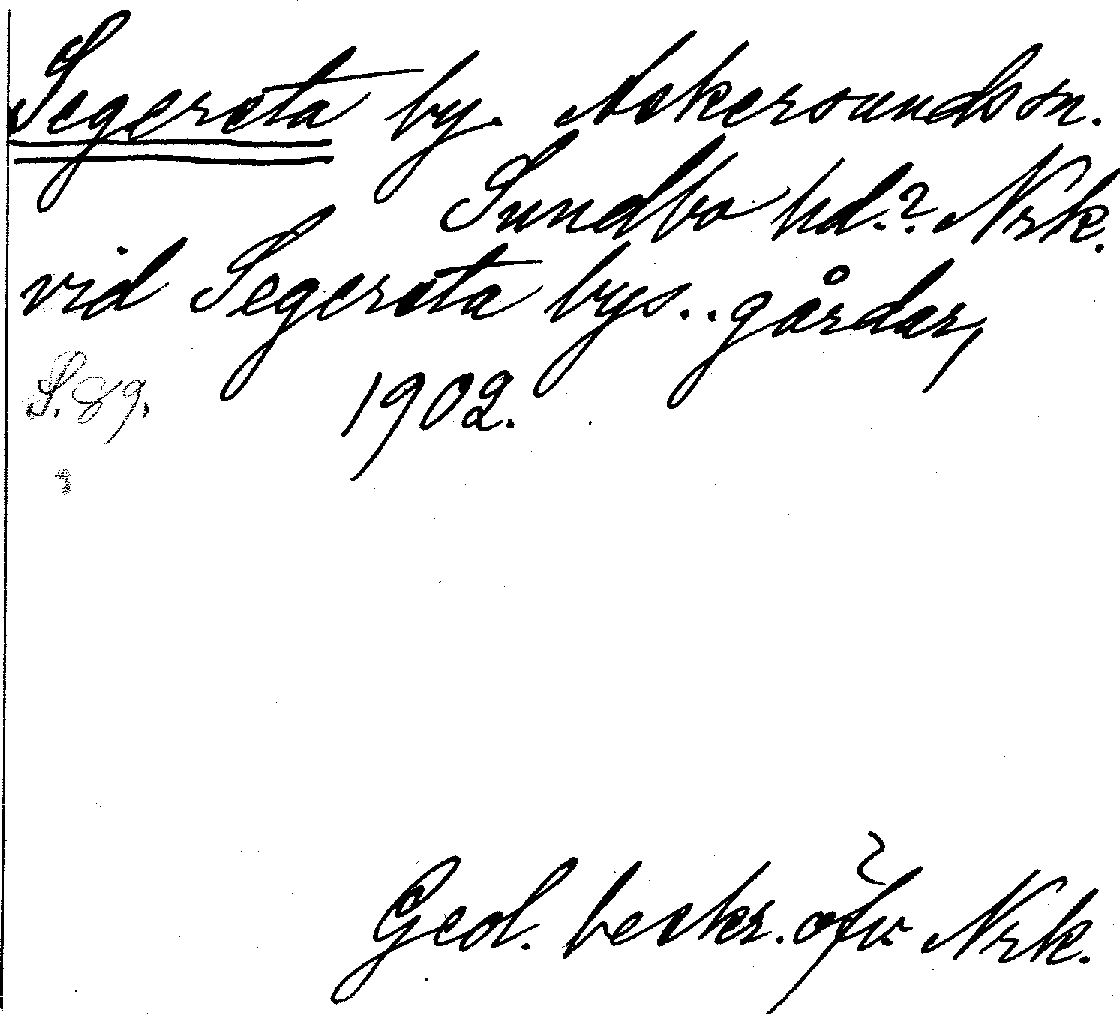 Segersta by. Askersunds sn.
Sundbo hd.? Nrk.
vid Segersta bys.. gårdar,
S. 89. 1902.
Geol. beskr. öfv. Nrk.